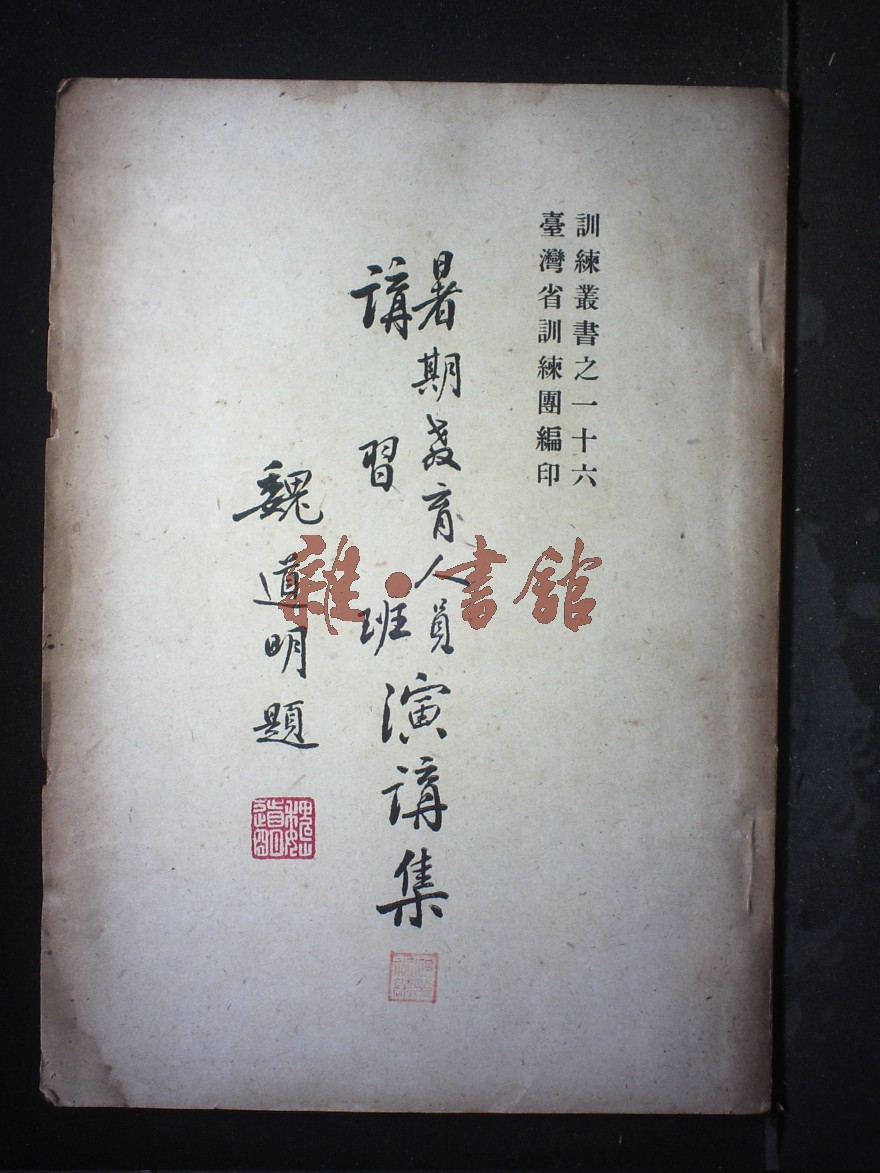 訓練叢書之一十六
臺灣省訓練團編印
暑期教育人員
講習班
演講集
魏道明題
雜·書館